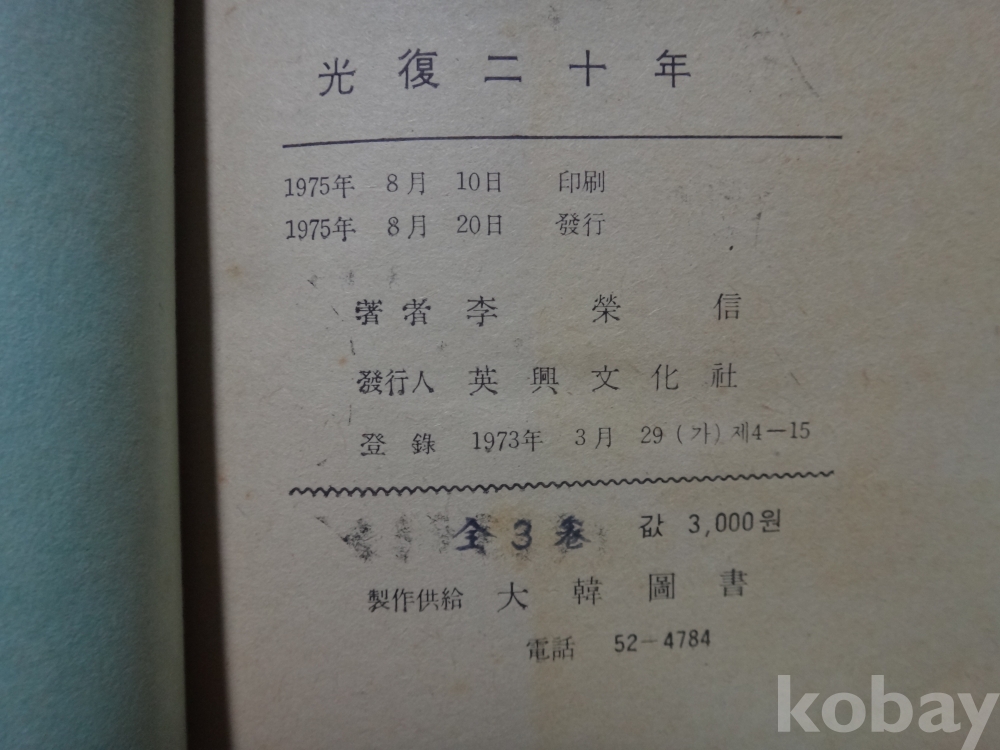 光復二十年
1975年 8月 10日 印刷
1975年 8月 20日 發行
著者 李榮信
發行人 英興文化社
登錄 1973年 3月 29 (가) 제4-15
全3卷 값 3,000원
製作供給 大韓圖書
電話 52-4784
kobay